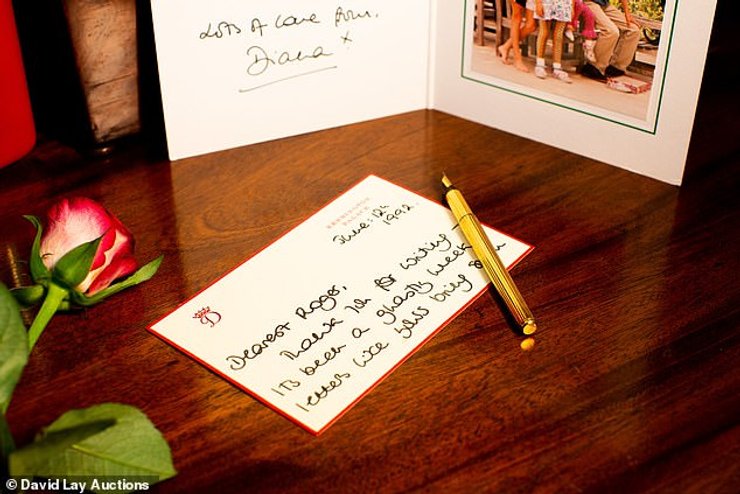 Lots of love from,
Diana x
KENSINGTON
PALACE
June: 12th
1992.
D
Dearest Roger,
Thank you for writing -
Its been a ghastly week
letters like yours bring
© David Lay Auctions